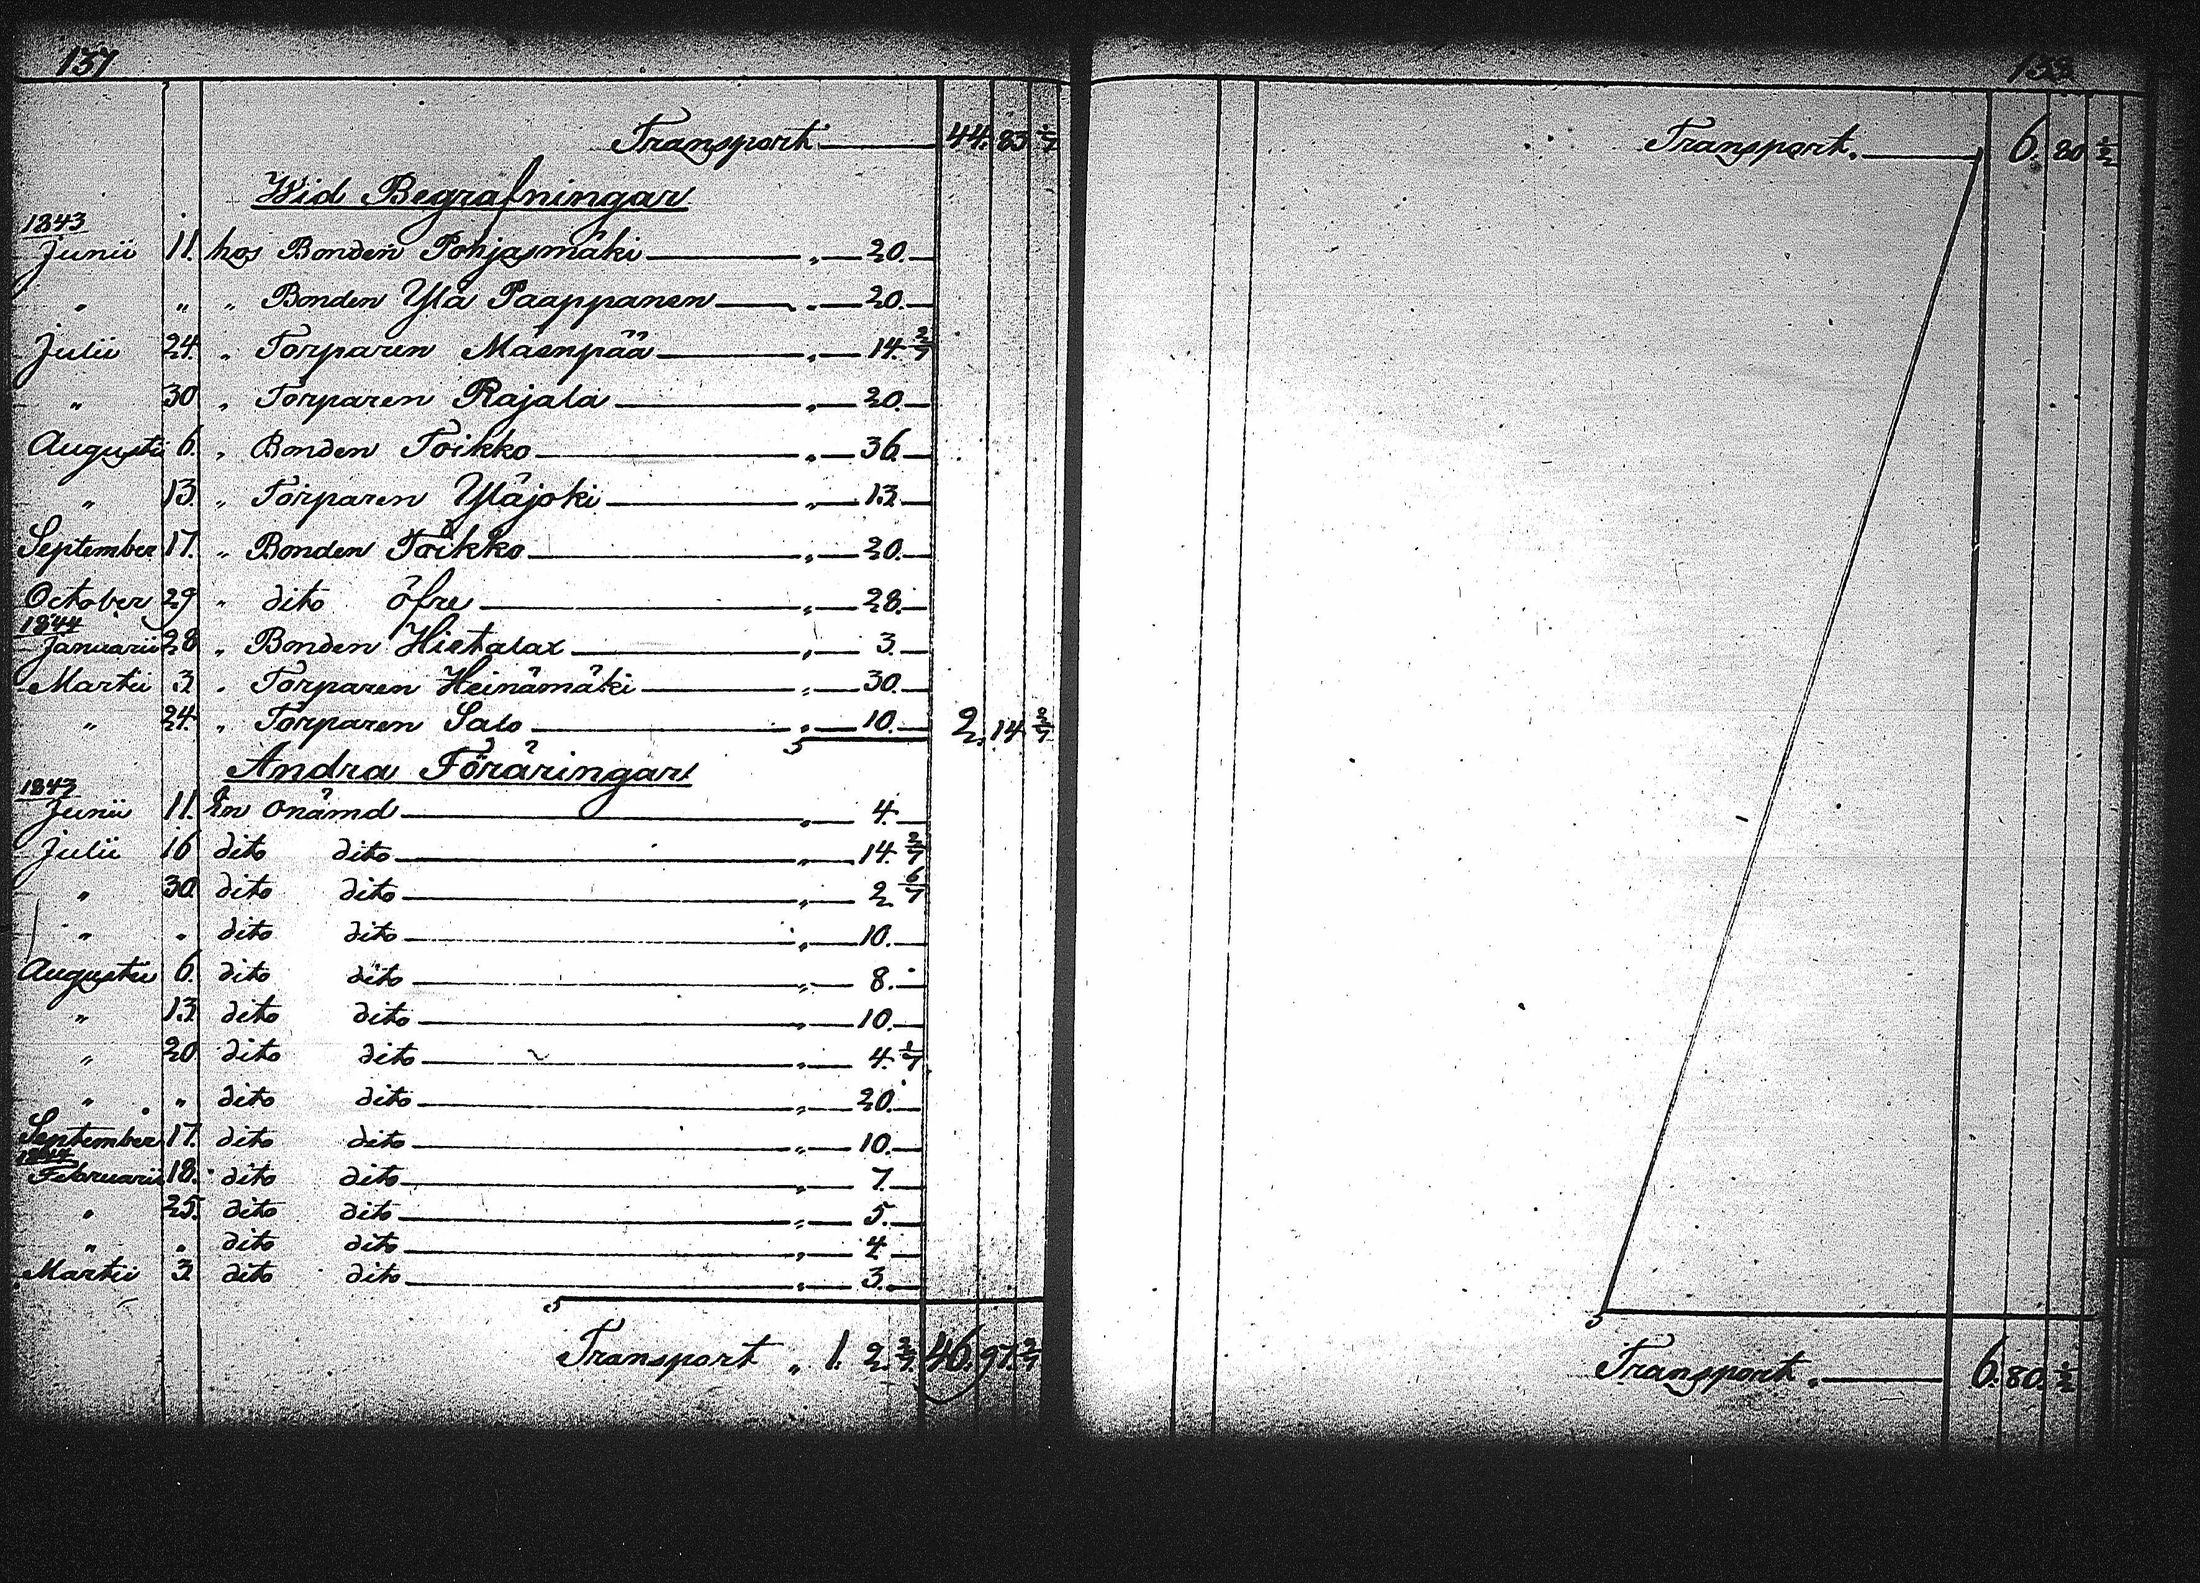 137
Transport 44. 83 1/7
Wid Begrafningar
1843
Junii 11. hos Bonden Pohjasmäki „ 20.
„ „ „ Bonden Ylä Paappanen „ 20.
Julii 24. „ Torparen Mäenpää „ 14. 2/7
„ 30 „ Torparen Rajala „ 20.
Augusti 6. „ Bonden Toikko „ 36.
„ 13. „ Torparen Yläjoki „ 13.
September 17. „ Bonden Toikko „ 20.
October 29 „ dito öfre „ 28.
1844
Januarii 28 „ Bonden Hietalax „ 3.
Martii 3. „ Torparen Heinämäki „ 30.
„ 24. „ Torparen Salo „ 10. 2. 14. 2/7
Andra Föräringar
1843
Junii 11. En onämd „ 4.
Julii 16 dito dito „ 14. 2/7
„ 30. dito dito „ 2 6/7
„ „ dito dito „ 10.
Augusti 6. dito dito „ 8.
„ 13. dito dito „ 10.
„ 20. dito dito „ 4. 1/7
„ „ dito dito „ 20.
September 17. dito dito „ 10.
1844
Februarii 18. dito dito „ 7.
„ 25. dito dito „ 5.
„ „ dito dito „ 4
Martii 3. dito dito „ 3.
Transport „ 1. 2. 2/7 46. 97. 3/7
138
Transport. 6. 80 1/2
Transport. 6. 80. 1/2